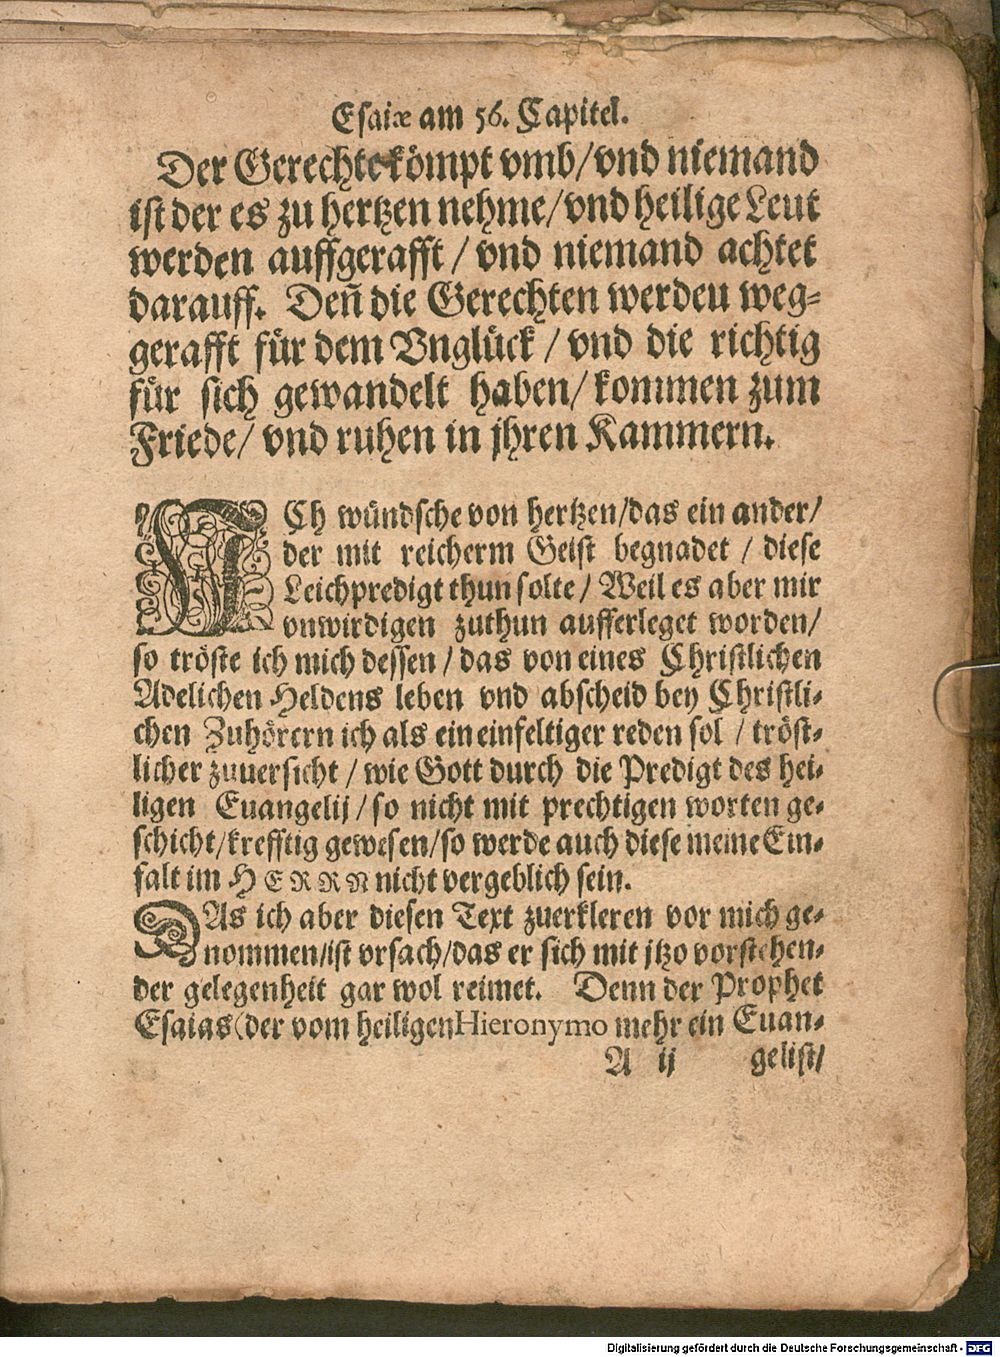 Esaiæ am 56. Capitel.
Der Gerechte kömpt vmb/vnd niemand
ist der es zu hertzen nehme/vnd heilige Leut
werden auffgerafft / vnd niemand achtet
darauff. Deñ die Gerechten werdeu weg-
gerafft für dem Vnglück / vnd die richtig
für sich gewandelt haben/ kommen zum
Friede/ vnd ruhen in jhren Kammern.
ICh wündsche von hertzen/das ein ander/
der mit reicherm Geist begnadet / diese
Leichpredigt thun solte / Weil es aber mir
vnwirdigen zuthun aufferleget worden/
so tröste ich mich dessen / das von eines Christlichen
Adelichen Heldens leben vnd abscheid bey Christli-
chen Zuhörern ich als ein einfeltiger reden sol / tröst-
licher zuuersicht / wie Gott durch die Predigt des hei-
ligen Euangelij / so nicht mit prechtigen worten ge-
schicht/krefftig gewesen/so werde auch diese meine Ein-
falt im HERRN nicht vergeblich sein.
DAs ich aber diesen Text zuerkleren vor mich ge-
nommen/ist vrsach/das er sich mit jtzo vorstehen-
der gelegenheit gar wol reimet. Denn der Prophet
Esaias(der vom heiligen Hieronymo mehr ein Euan-
A ij gelist/
Digitalisierung gefördert durch die Deutsche Forschungsgemeinschaft - DFG